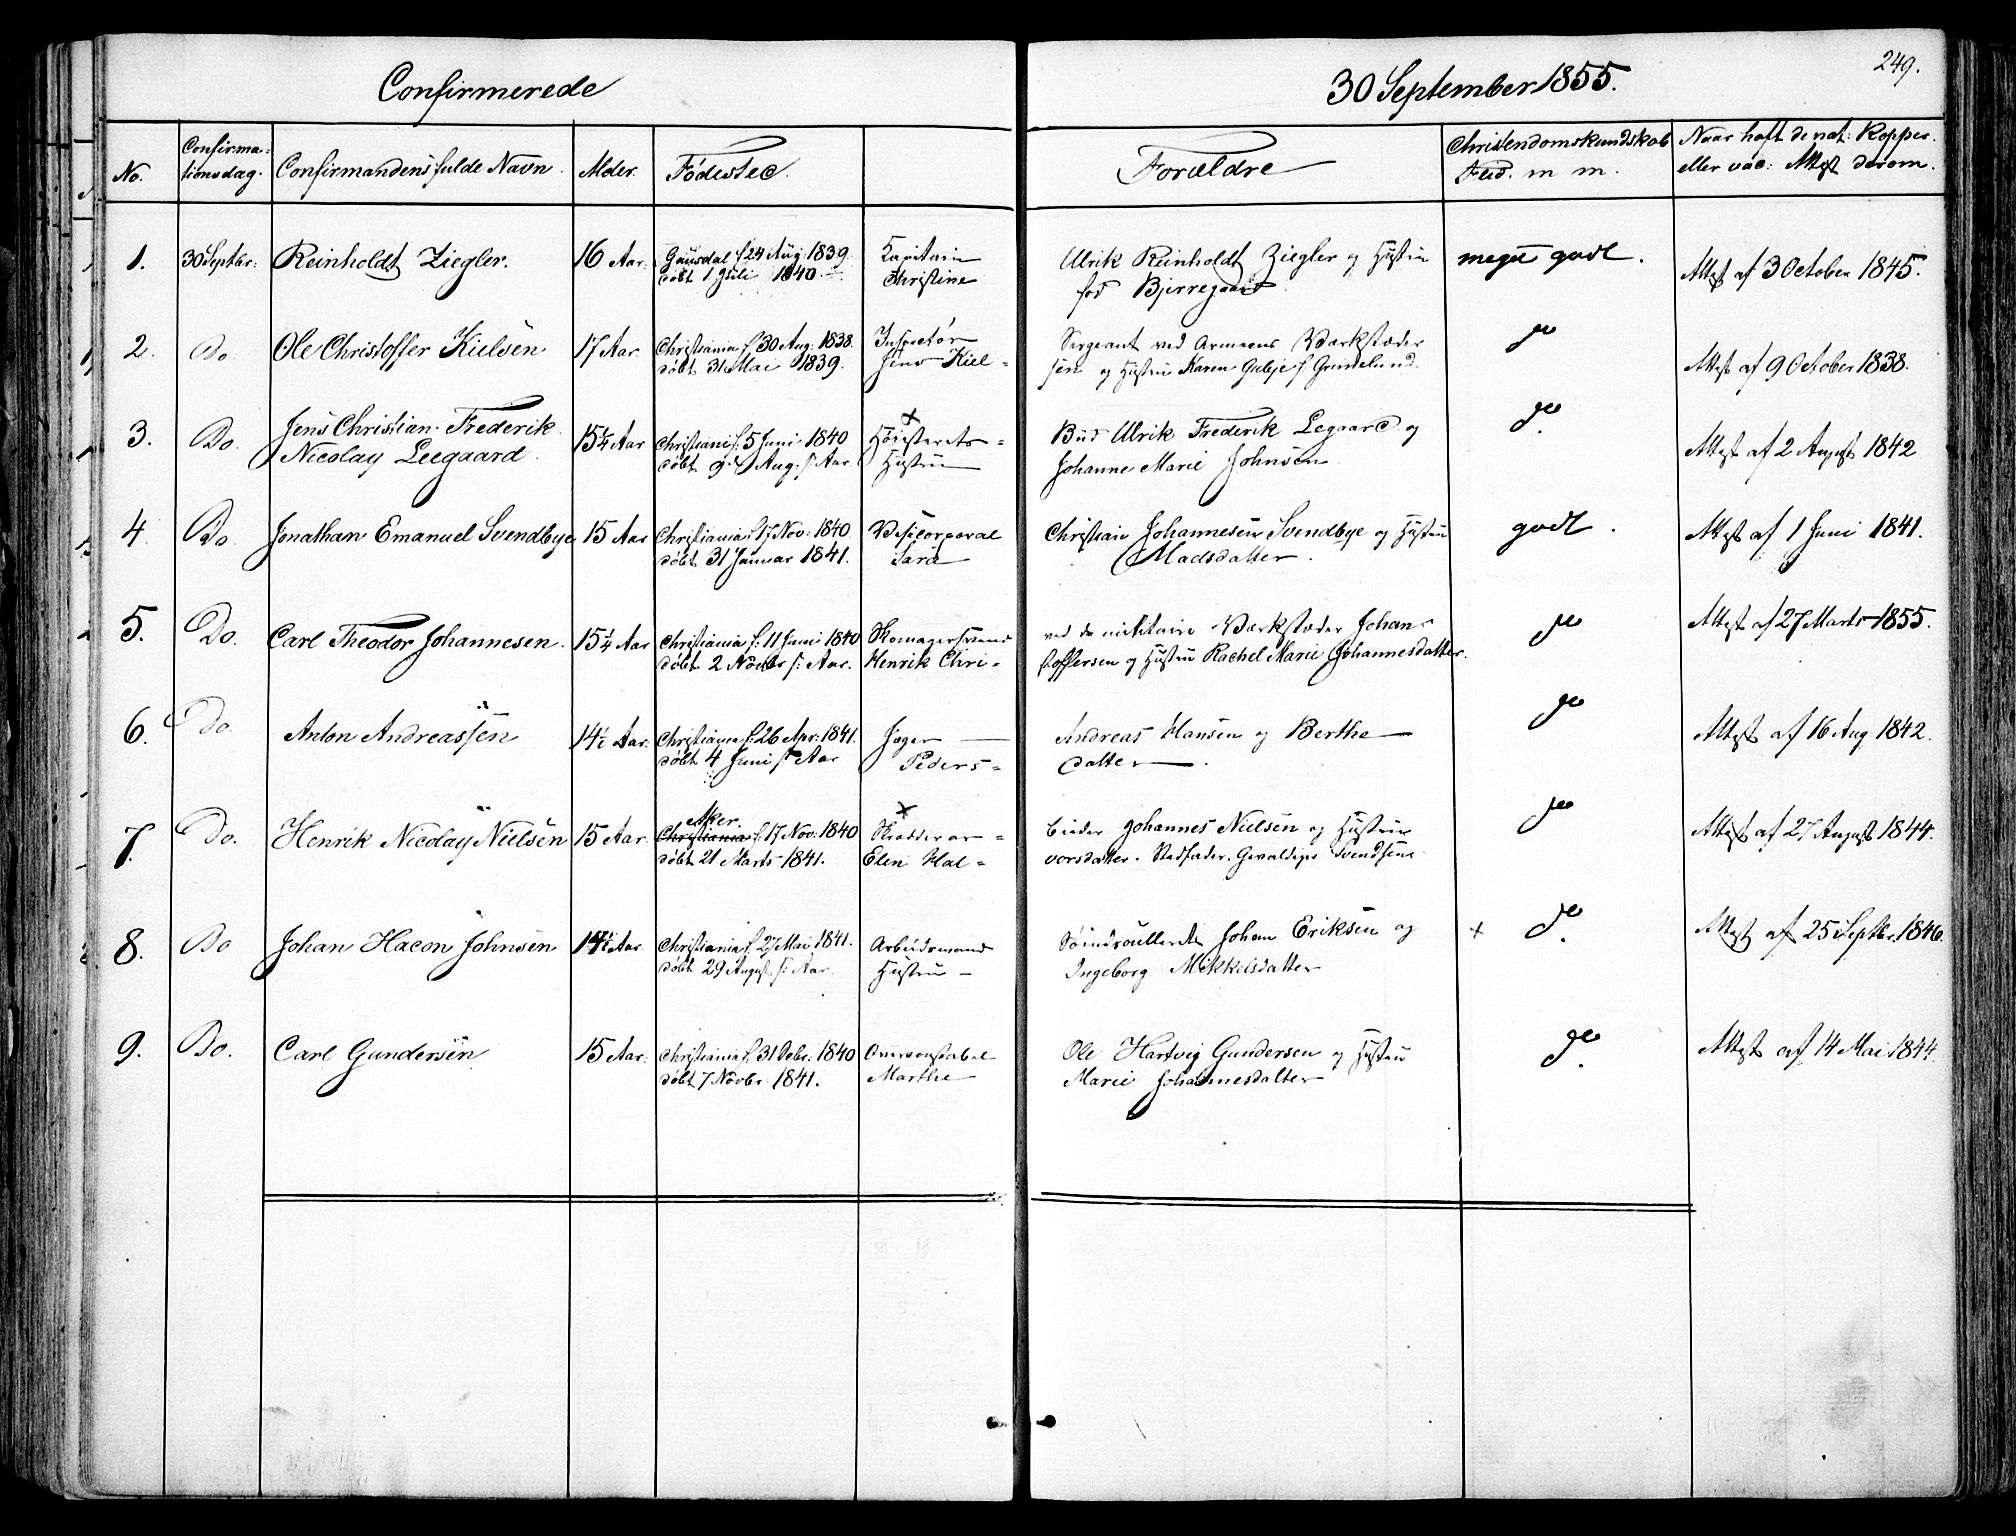 249.
Confirmerede 30 September 1855.
No. Confirmationsdag. Confirmandens fulde Navn. Alder. Fødested. Forældre Christendomskundskab Flid. m m. Naar haft de nat: Kopper eller vac: Attest derom.
1. 30 Septbr: Reinholdt Ziegler. 16 Aar. Gausdal f. 24 Aug: 1839. Kapitain Ulrik Reinholdt Ziegler og Hustru meget godt. Attest af 3 October 1845.
døbt 1 Juli 1840. Christine fød Bjerregaard.
2. Do. Ole Christoffer Kielsen 17 Aar. Christiania f. 30 Aug: 1838. Inspectør Sergeant ved Armeens Værkstæder do Attest af 9 October 1838.
døbt 31 Mai 1839. Jens Kiel- sen og Hustru Karen f.
3. Do. Jens Christian Frederik 15¼ Aar Christiania f. 5 Juni 1840 Høiesterets- Bud Ulrik Frederik Legaard og do. Attest af 2 August 1842
Nicolay Leegaard. døbt 9de Aug: s. Aar. Hustru Johanne Marie Johnsen
4. Do. Jonathan Emanuel Svendbye 15 Aar Christiania f. 17 Nov: 1840 Vicecorporal Christian Johannesen Svendbye og Hustru godt. Attest af 1 Juni 1841.
døbt 31 Januar 1841. Sara Madsdatter.
5. Do. Carl Theodor Johannesen. 15¼ Aar Christiania f. 11 Juni 1840 Skomagersvend ved de militaire Værkstæder Johan do Attest af 27 Marts 1855.
døbt 2 Novbr s. Aar. Henrik Chri- stoffersen og Hustru Rachel Marie Johannesdatter.
6. Do. Anton Andreassen 14½ Aar. Christiania f. 26 Apr: 1841. Jæger Andreas Hansen og Berthe do Attest af 16 Aug 1842.
døbt 4 Juni s. Aar Peders- datter.
7. Do. Henrik Nicolay Nielsen 15 Aar. Aker. Christiania f. 17 Nov: 1840 Skrædderar- beider Johannes Nielsen og Hustru do Attest af 27 August 1844.
døbt 21 Marts 1841. Elen Hal- vorsdatter. Stedfader. Gevaldiger Svendsen
8. Do Johan Hacon Johnsen 14½ Aar. Christiania f. 27 Mai 1841. Arbeidsmand Søindroulleret Johan Eriksen og do. Attest af 25 Septbr. 1846.
døbt 29 August s. Aar. Hustru Ingeborg Mikkelsdatter
9. Do. Carl Gundersen 15 Aar. Christiania f. 31 1840 Overconstabel Ole Hartvig Gundersen og Hustru do. Attest af 14 Mai 1844.
døbt 7 Novbr. 1841. Marthe Marie Johannesdatter